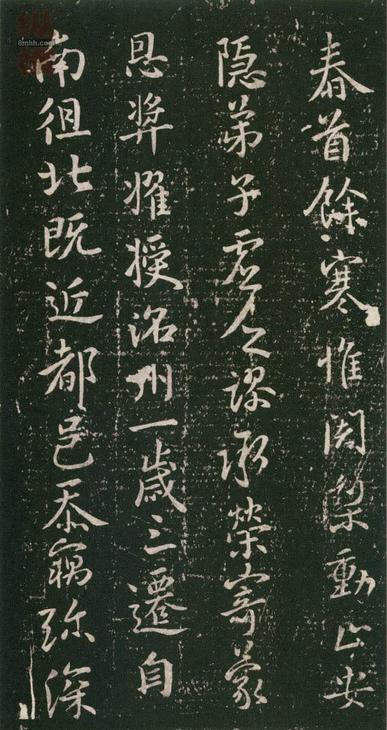 春首餘寒惟闍梨動止安
隐弟子虚乏謬承榮寄蒙
恩奬擢授洺州一歲三遷自
南徂北既近都邑忝竊弥深
8mhh.com